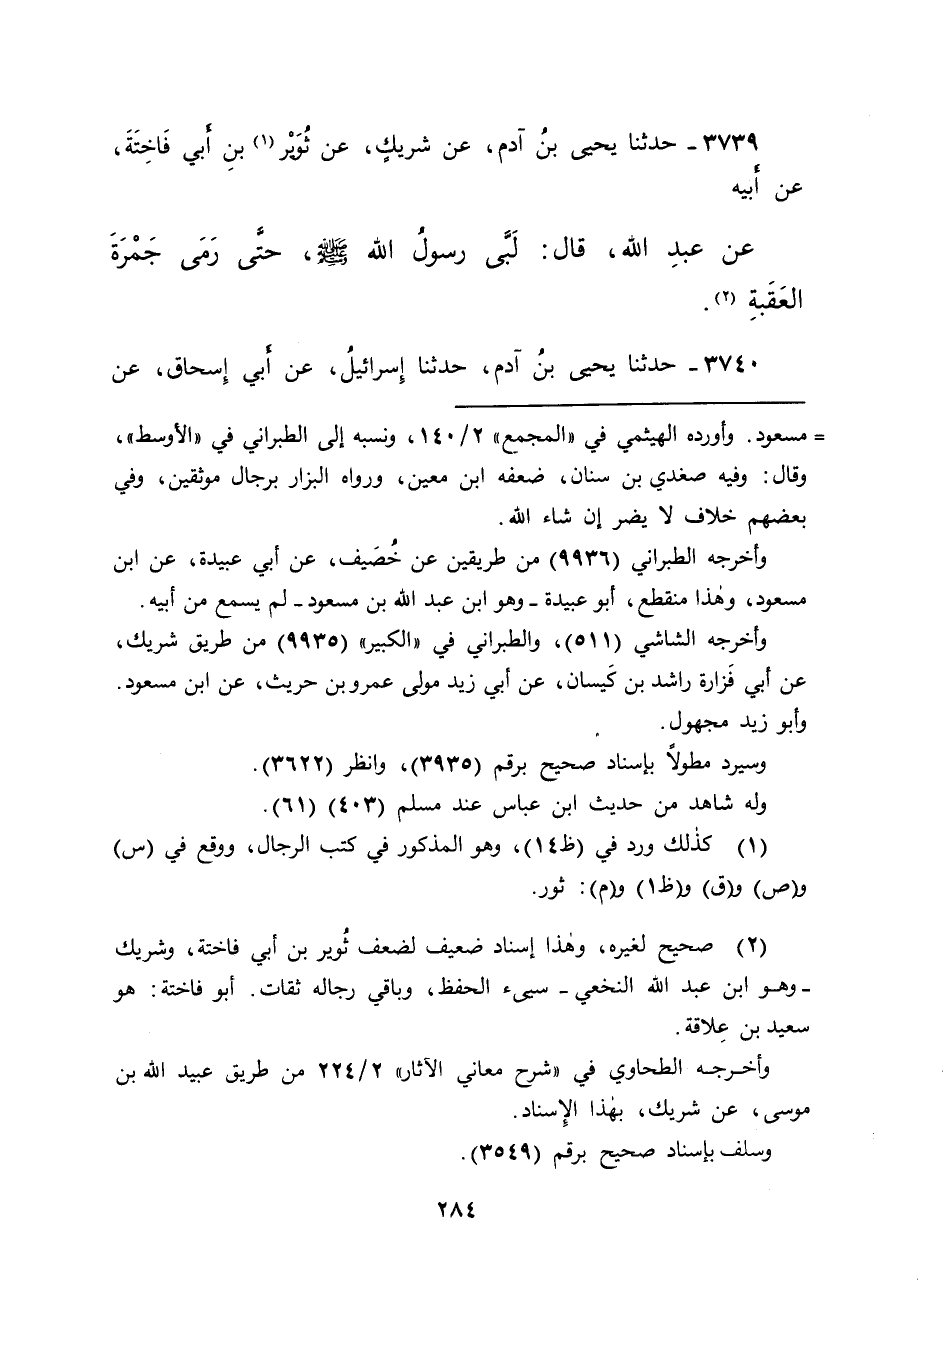 ٣٧٣٩ ـ حدثنا يحيى بنُ آدم، عن شريكٍ، عن ثُوَيْر (١) بنِ أَبي فَاخِتَةَ،
عن أَبيه
عن عبدِ الله، قال: لَبَّى رسولُ الله ﷺ، حتَّى رَمَى جَمْرَةَ
العَقَبةِ (٢).
٣٧٤٠ ـ حدثنا يحيى بنُ آدم، حدثنا إسرائيلُ، عن أَبي إسحاق، عن
= مسعود. وأورده الهيثمي في «المجمع» ١٤٠/٢، ونسبه إلى الطبراني في «الأوسط»،
وقال: وفيه صغدي بن سنان، ضعفه ابن معين، ورواه البزار برجال موثقين، وفي
بعضهم خلاف لا يضر إن شاء الله.
وأخرجه الطبراني (٩٩٣٦) من طريقين عن خُصَيف، عن أبي عبيدة، عن ابن
مسعود، وهٰذا منقطع، أبو عبيدة ـ وهو ابن عبد الله بن مسعود ـ لم يسمع من أبيه.
وأخرجه الشاشي (٥١١)، والطبراني في «الكبير» (٩٩٣٥) من طريق شريك،
عن أبي فَزارة راشد بن كَيسان، عن أبي زيد مولى عمرو بن حريث، عن ابن مسعود.
وأبو زيد مجهول.
وسيرد مطولاً بإسناد صحيح برقم (٣٩٣٥)، وانظر (٣٦٢٢).
وله شاهد من حديث ابن عباس عند مسلم (٤٠٣) (٦١).
(١) كذٰلك ورد في (ظ١٤)، وهو المذكور في كتب الرجال، ووقع في (س)
و(ص) و(ق) و(ظ١) و(م): ثور.
(٢) صحيح لغيره، وهٰذا إسناد ضعيف لضعف ثُوير بن أبي فاختة، وشريك
ـ وهو ابن عبد الله النخعي ـ سيىء الحفظ، وباقي رجاله ثقات. أبو فاختة: هو
سعيد بن عِلاقة.
وأخرجه الطحاوي في «شرح معاني الآثار» ٢٢٤/٢ من طريق عبيد الله بن
موسى، عن شريك، بهٰذا الإِسناد.
وسلف بإسناد صحيح برقم (٣٥٤٩).
٢٨٤